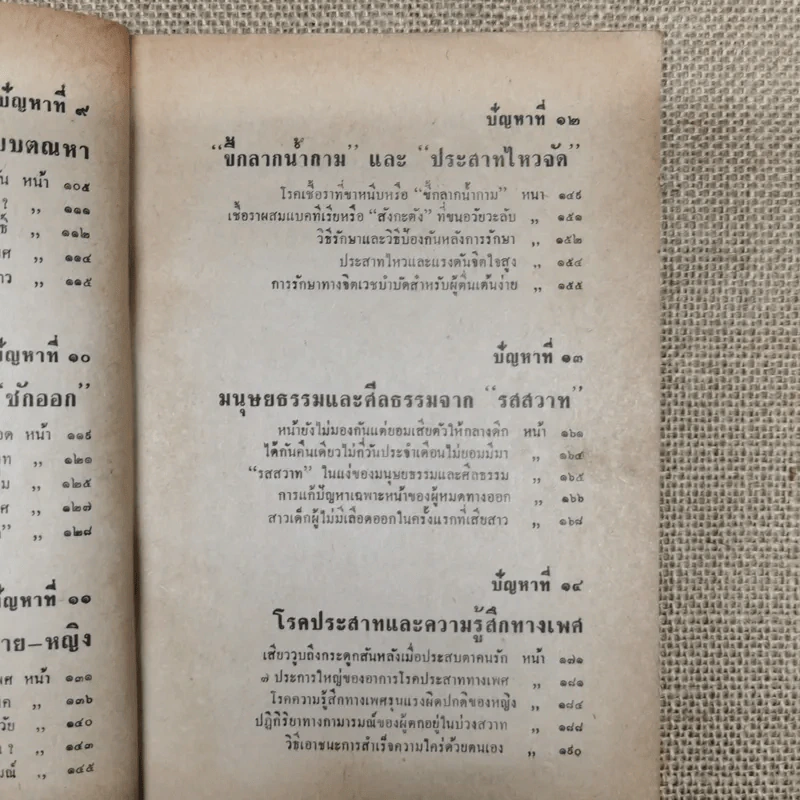 ปัญหาที่ ๙
บบตณหา
น หน้า ๑๐๕
? ,, ๑๑๑
ธ์ ,, ๑๑๒
ศ ,, ๑๑๔
าว ,, ๑๑๕
ปัญหาที่ ๑๐
“ชักออก”
อด หน้า ๑๑๙
ท ,, ๑๒๑
ม ,, ๑๒๕
ศ ,, ๑๒๗
” ,, ๑๒๘
ปัญหาที่ ๑๑
าย–หญิง
พศ หน้า ๑๓๑
ค ,, ๑๓๖
วัย ,, ๑๔๐
น ? ,, ๑๔๓
มณ์ ,, ๑๔๕
ปัญหาที่ ๑๒
“ขี้กลากน้ำกาม” และ “ประสาทไหวจัด”
โรคเชื้อราที่ขาหนีบหรือ “ขี้กลากน้ำกาม” หน้า ๑๔๙
เชื้อราผสมแบคทีเรียหรือ “สังกะตัง” ที่ขนอวัยวะลับ ,, ๑๕๑
วิธีรักษาและวิธีป้องกันหลังการรักษา ,, ๑๕๒
ประสาทไหวและแรงดันจิตใจสูง ,, ๑๕๔
การรักษาทางจิตเวชบำบัดสำหรับผู้ตื่นเต้นง่าย ,, ๑๕๕
ปัญหาที่ ๑๓
มนุษยธรรมและศีลธรรมจาก “รสสวาท”
หน้ายังไม่มองกันแต่ยอมเสียตัวให้กลางดึก หน้า ๑๖๑
ได้กันคืนเดียวไม่กี่วันประจำเดือนไม่ยอมมีมา ,, ๑๖๔
“รสสวาท” ในแง่ของมนุษยธรรมและศีลธรรม ,, ๑๖๕
การแก้ปัญหาเฉพาะหน้าของผู้หมดทางออก ,, ๑๖๖
สาวเด็กผู้ไม่มีเลือดออกในครั้งแรกที่เสียสาว ,, ๑๖๘
ปัญหาที่ ๑๔
โรคประสาทและความรู้สึกทางเพศ
เสียววูบถึงกระดูกสันหลังเมื่อประสบตาคนรัก หน้า ๑๗๑
๗ ประการใหญ่ของอาการโรคประสาททางเพศ ,, ๑๘๑
โรคความรู้สึกทางเพศรุนแรงผิดปกติของหญิง ,, ๑๘๔
ปฏิกิริยาทางกามารมณ์ของผู้ตกอยู่ในบ่วงสวาท ,, ๑๘๘
วิธีเอาชนะการสำเร็จความใคร่ด้วยตนเอง ,, ๑๙๐